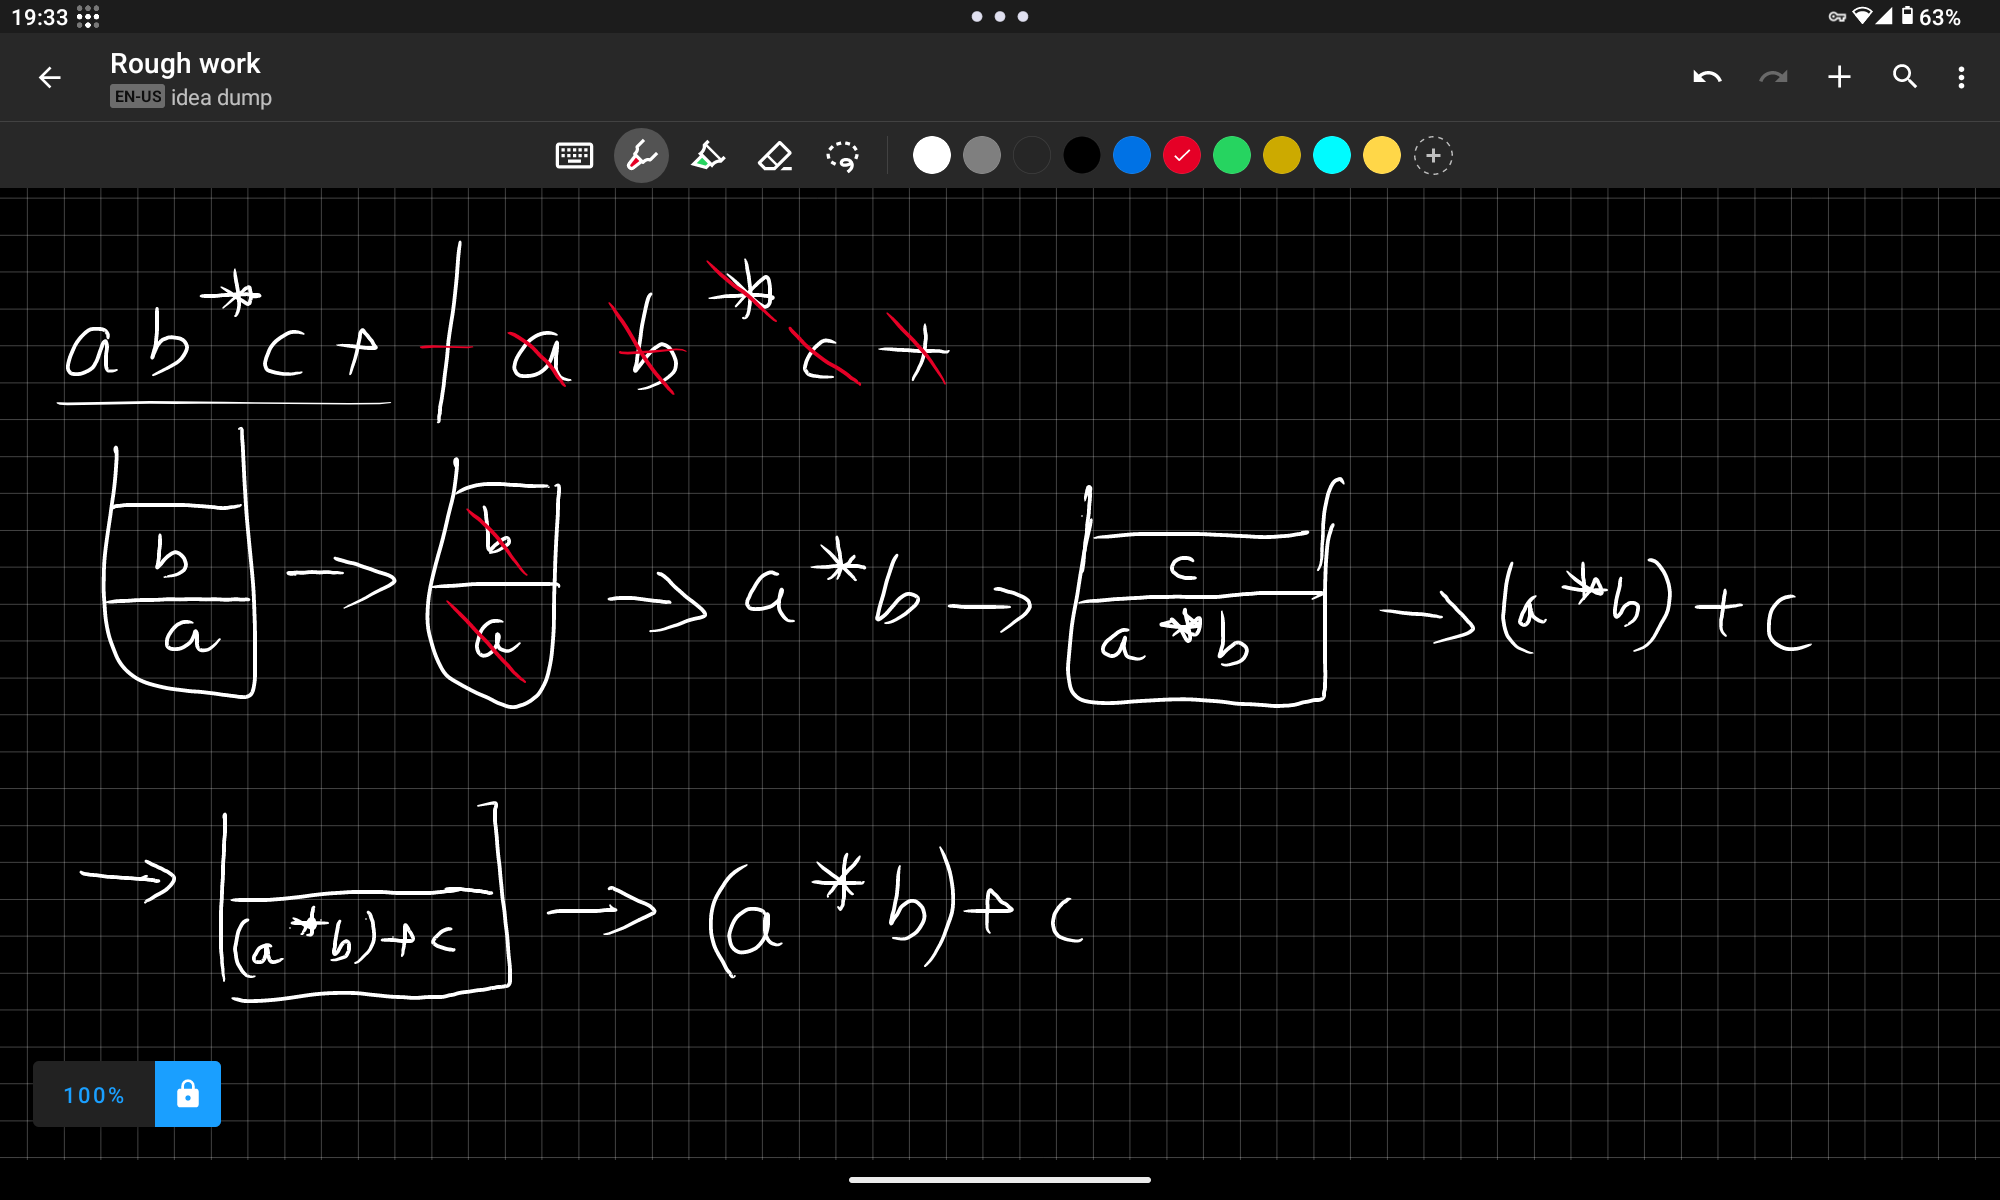 19:33 63%
Rough work
EN-US idea dump
a b * c + a b * c +
b b
a a
→ → a * b → c → (a * b) + c
a * b
→ (a * b) + c → (a * b) + c
100%